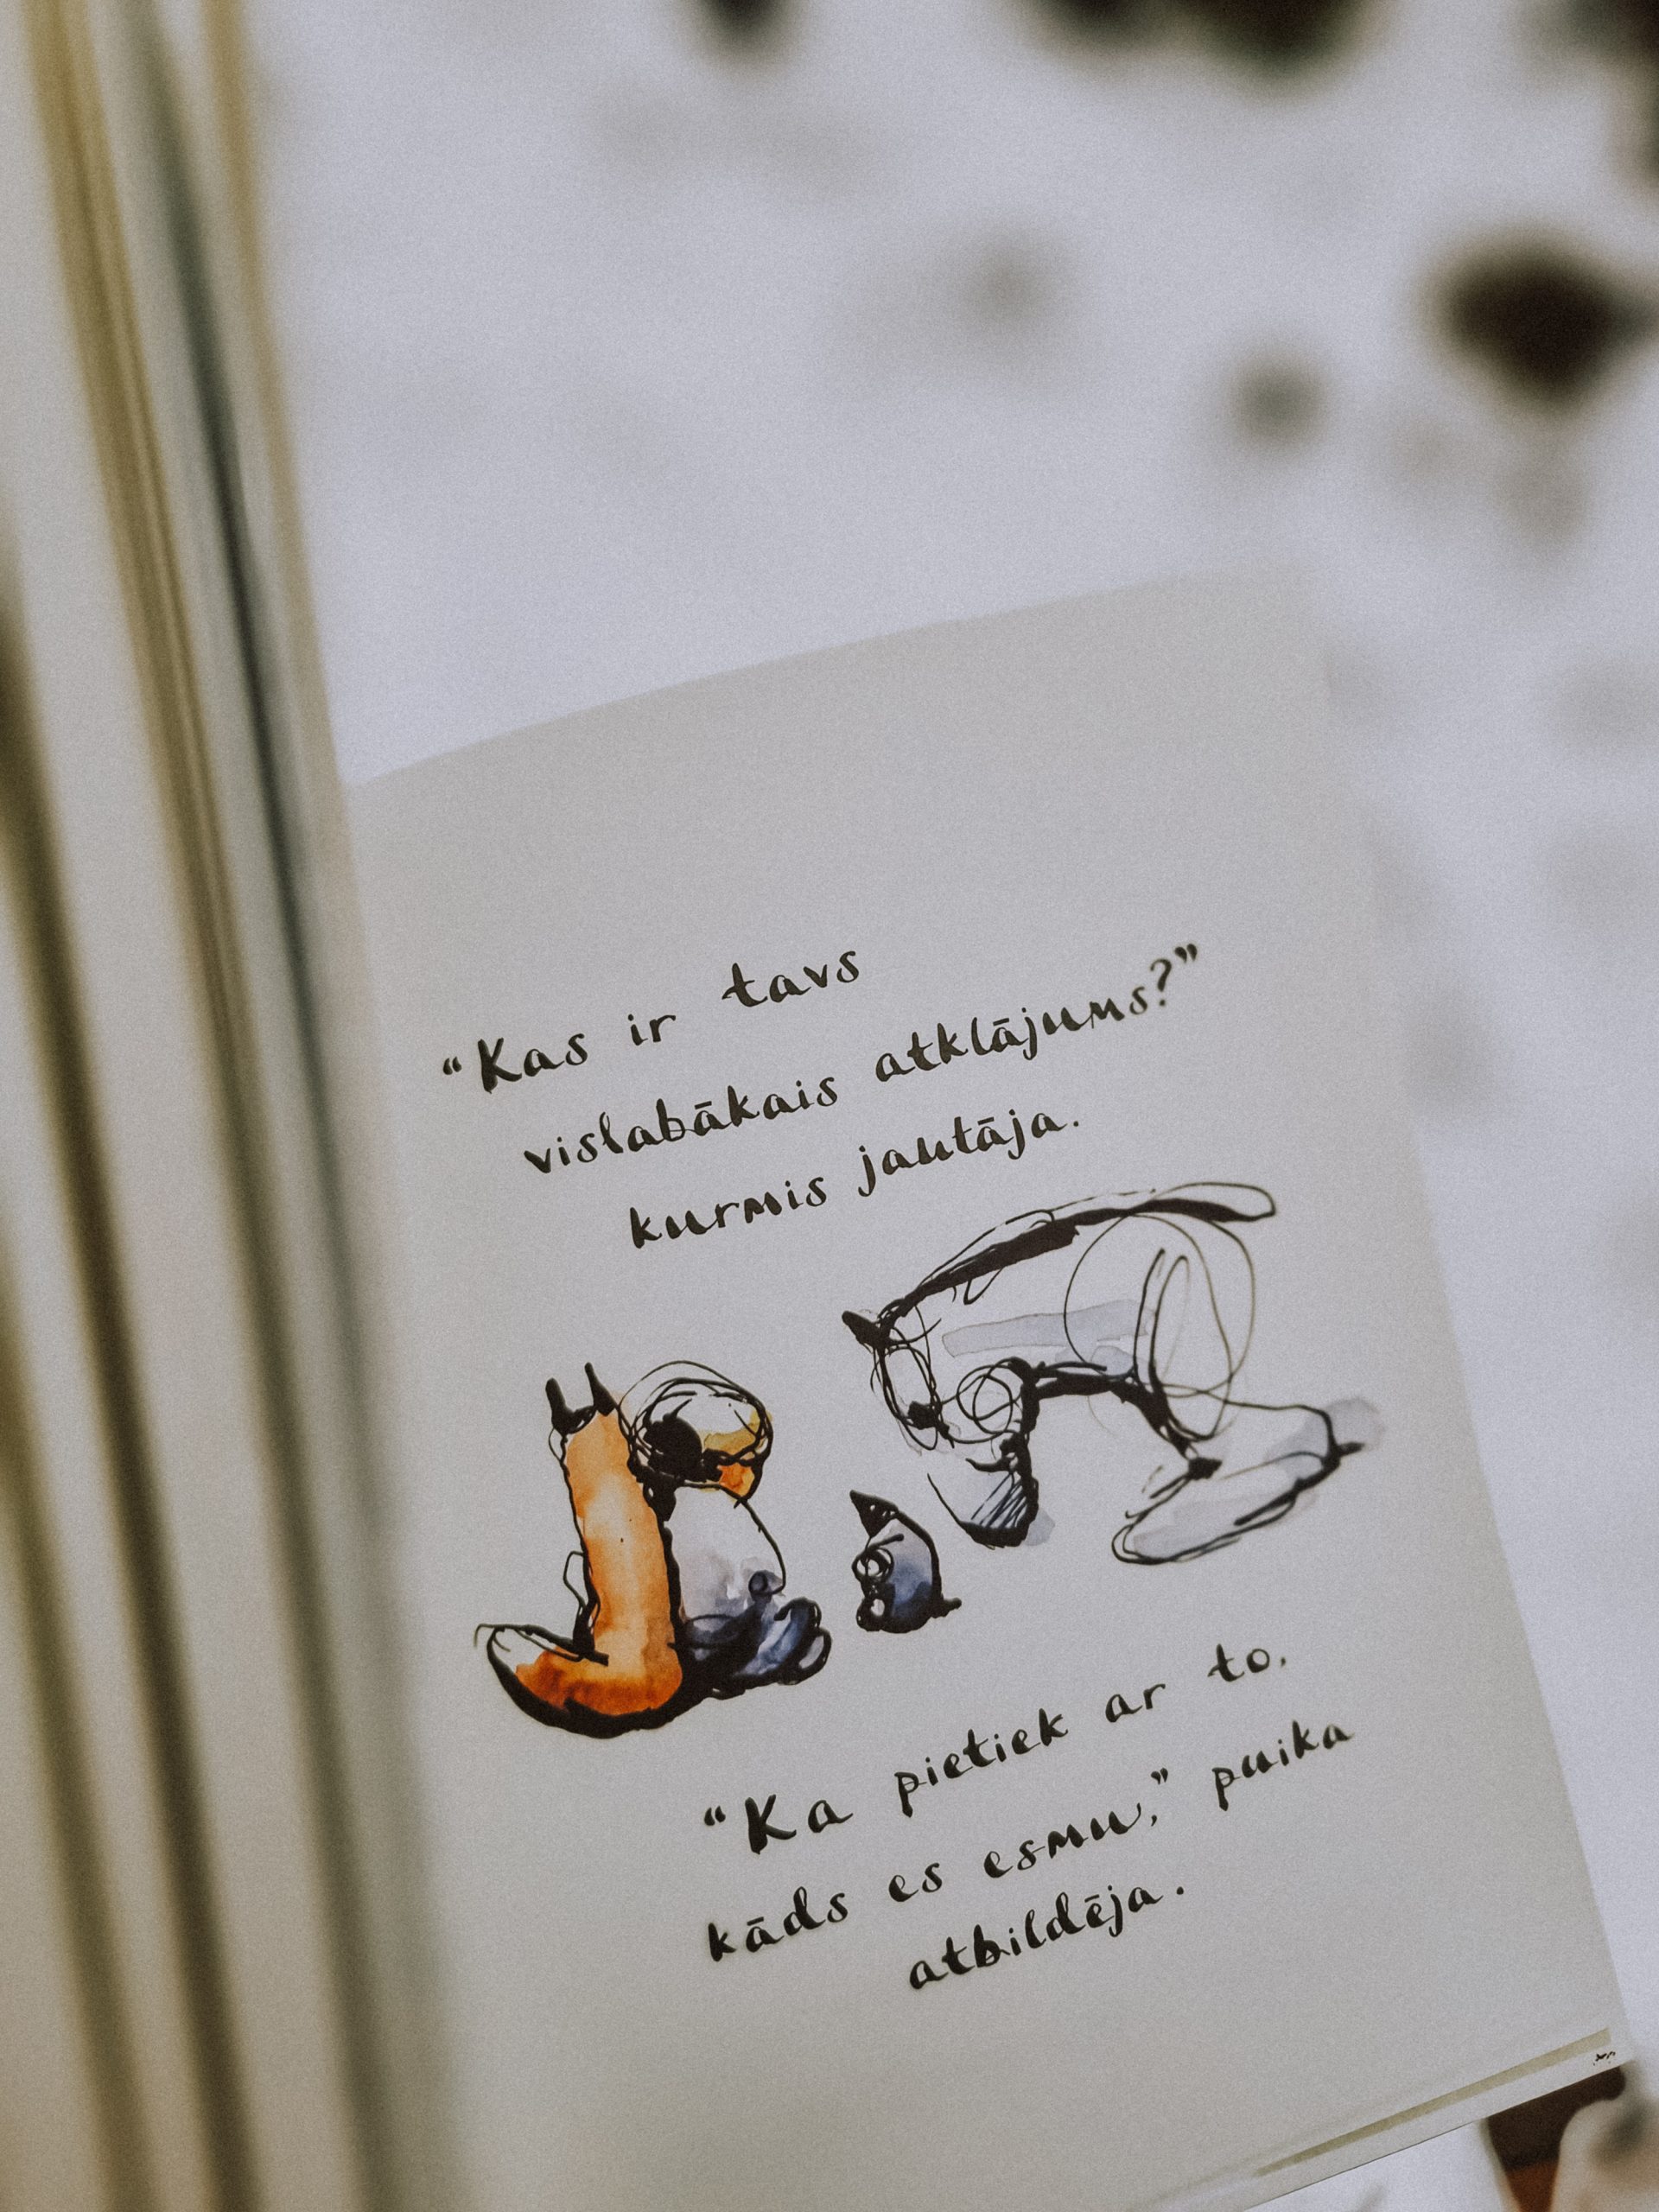 “Kas ir tavs
vislabākais atklājums?”
kurmis jautāja.
“Ka pietiek ar to,
kāds es esmu,” puika
atbildēja.